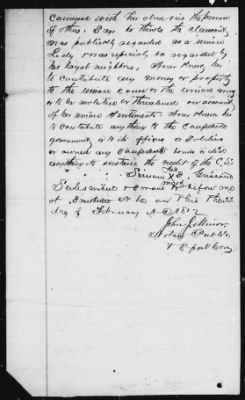 cannons with her alone in the presence
of others. Says he thinks the claimant
was publicly regarded as a Union
Lady & was especially so regarded by
her loyal neighbors. Never knew her
to contribute any money or property
to the Union cause or the Union army
or to be molested or threatened on account
of her Union sentiments. Never knew her
to contribute anything to the Confederate
government or to its officers or Soldiers
or owned any Confederate bonds or did
anything to sustain the credit of the C.S.
his
Simeon X
mark
Subscribed & sworn to before me
at this the
day of February A D 187
John J
Notary Public
&